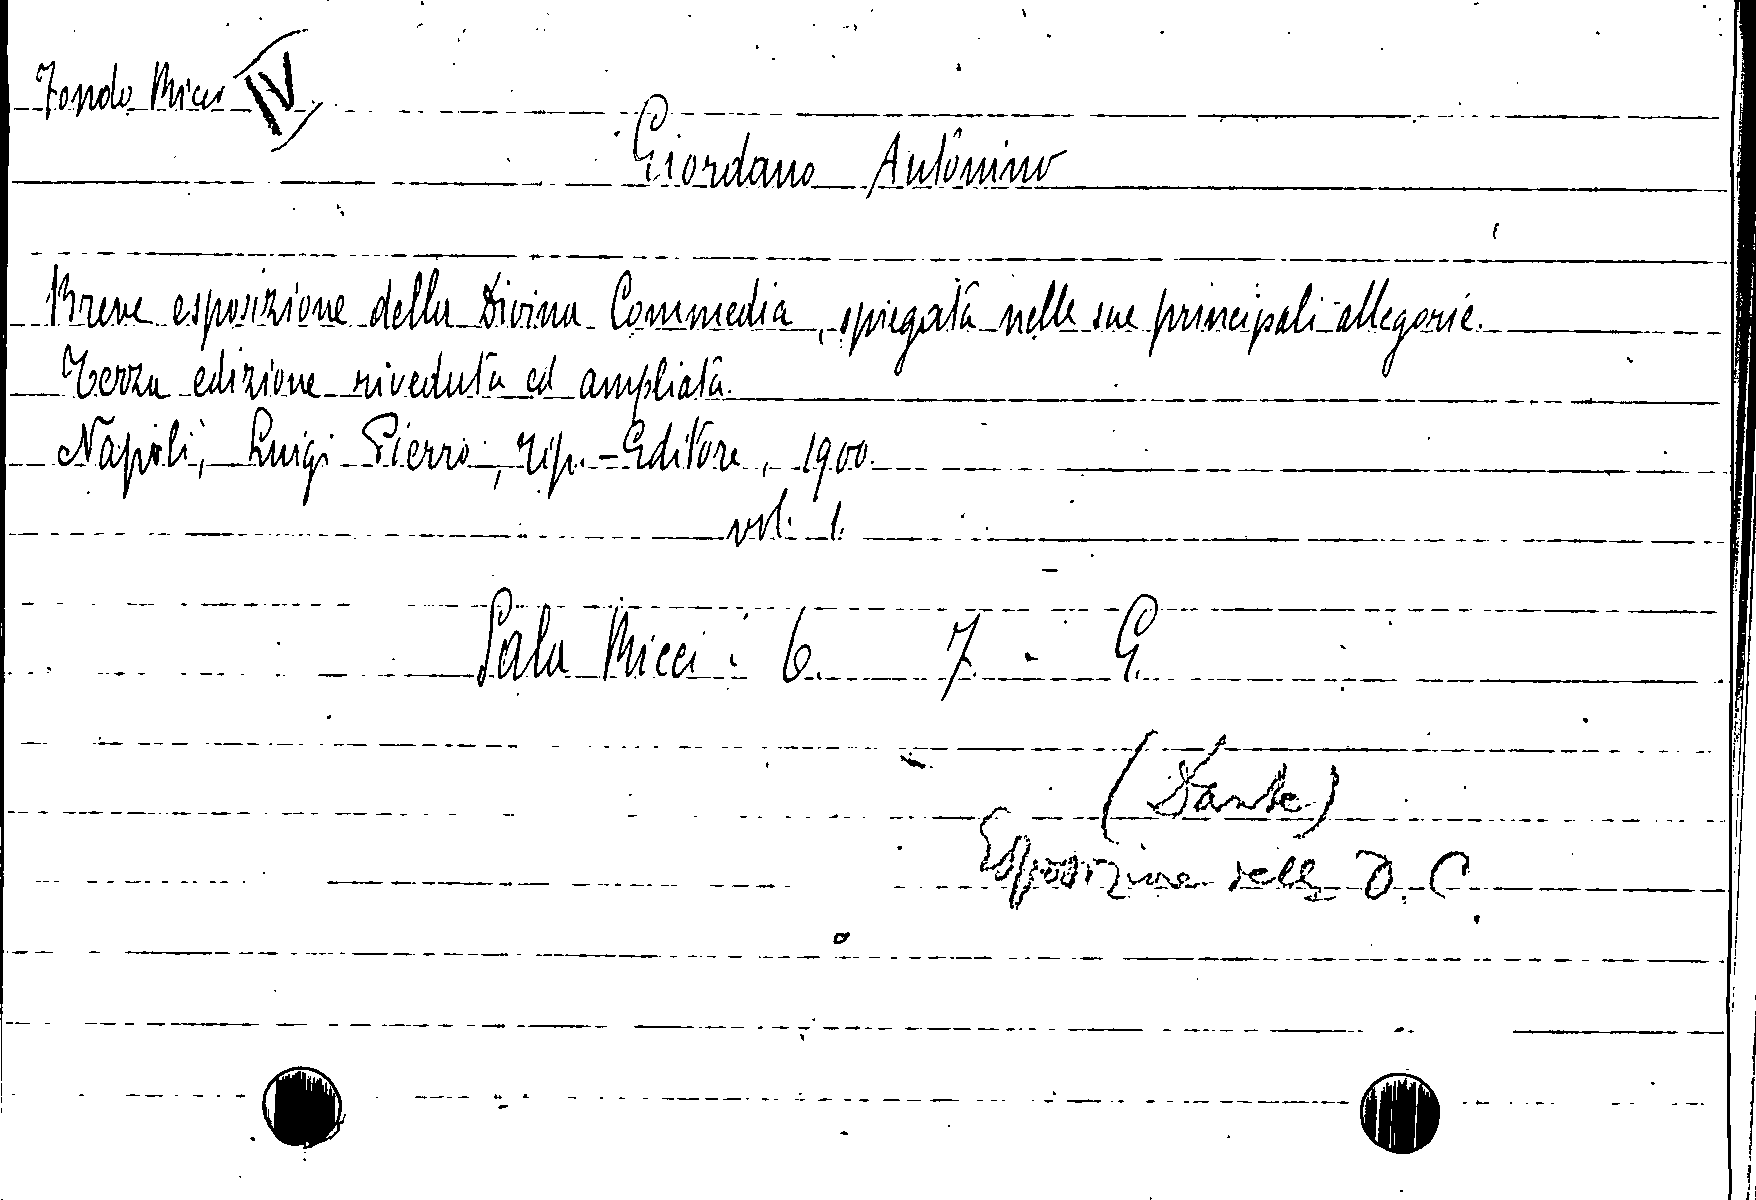 Fondo Micci IV
Giordano Antonino
Breve esposizione della Divina Commedia, spiegata nelle sue principali allegorie.
Terza edizione riveduta ed ampliata.
Napoli, Luigi Pierro, Tip.-Editore, 1900.
vol. 1.
Sala Micci : 6. 7. G.
(Dante)
Esposizione della D. C.